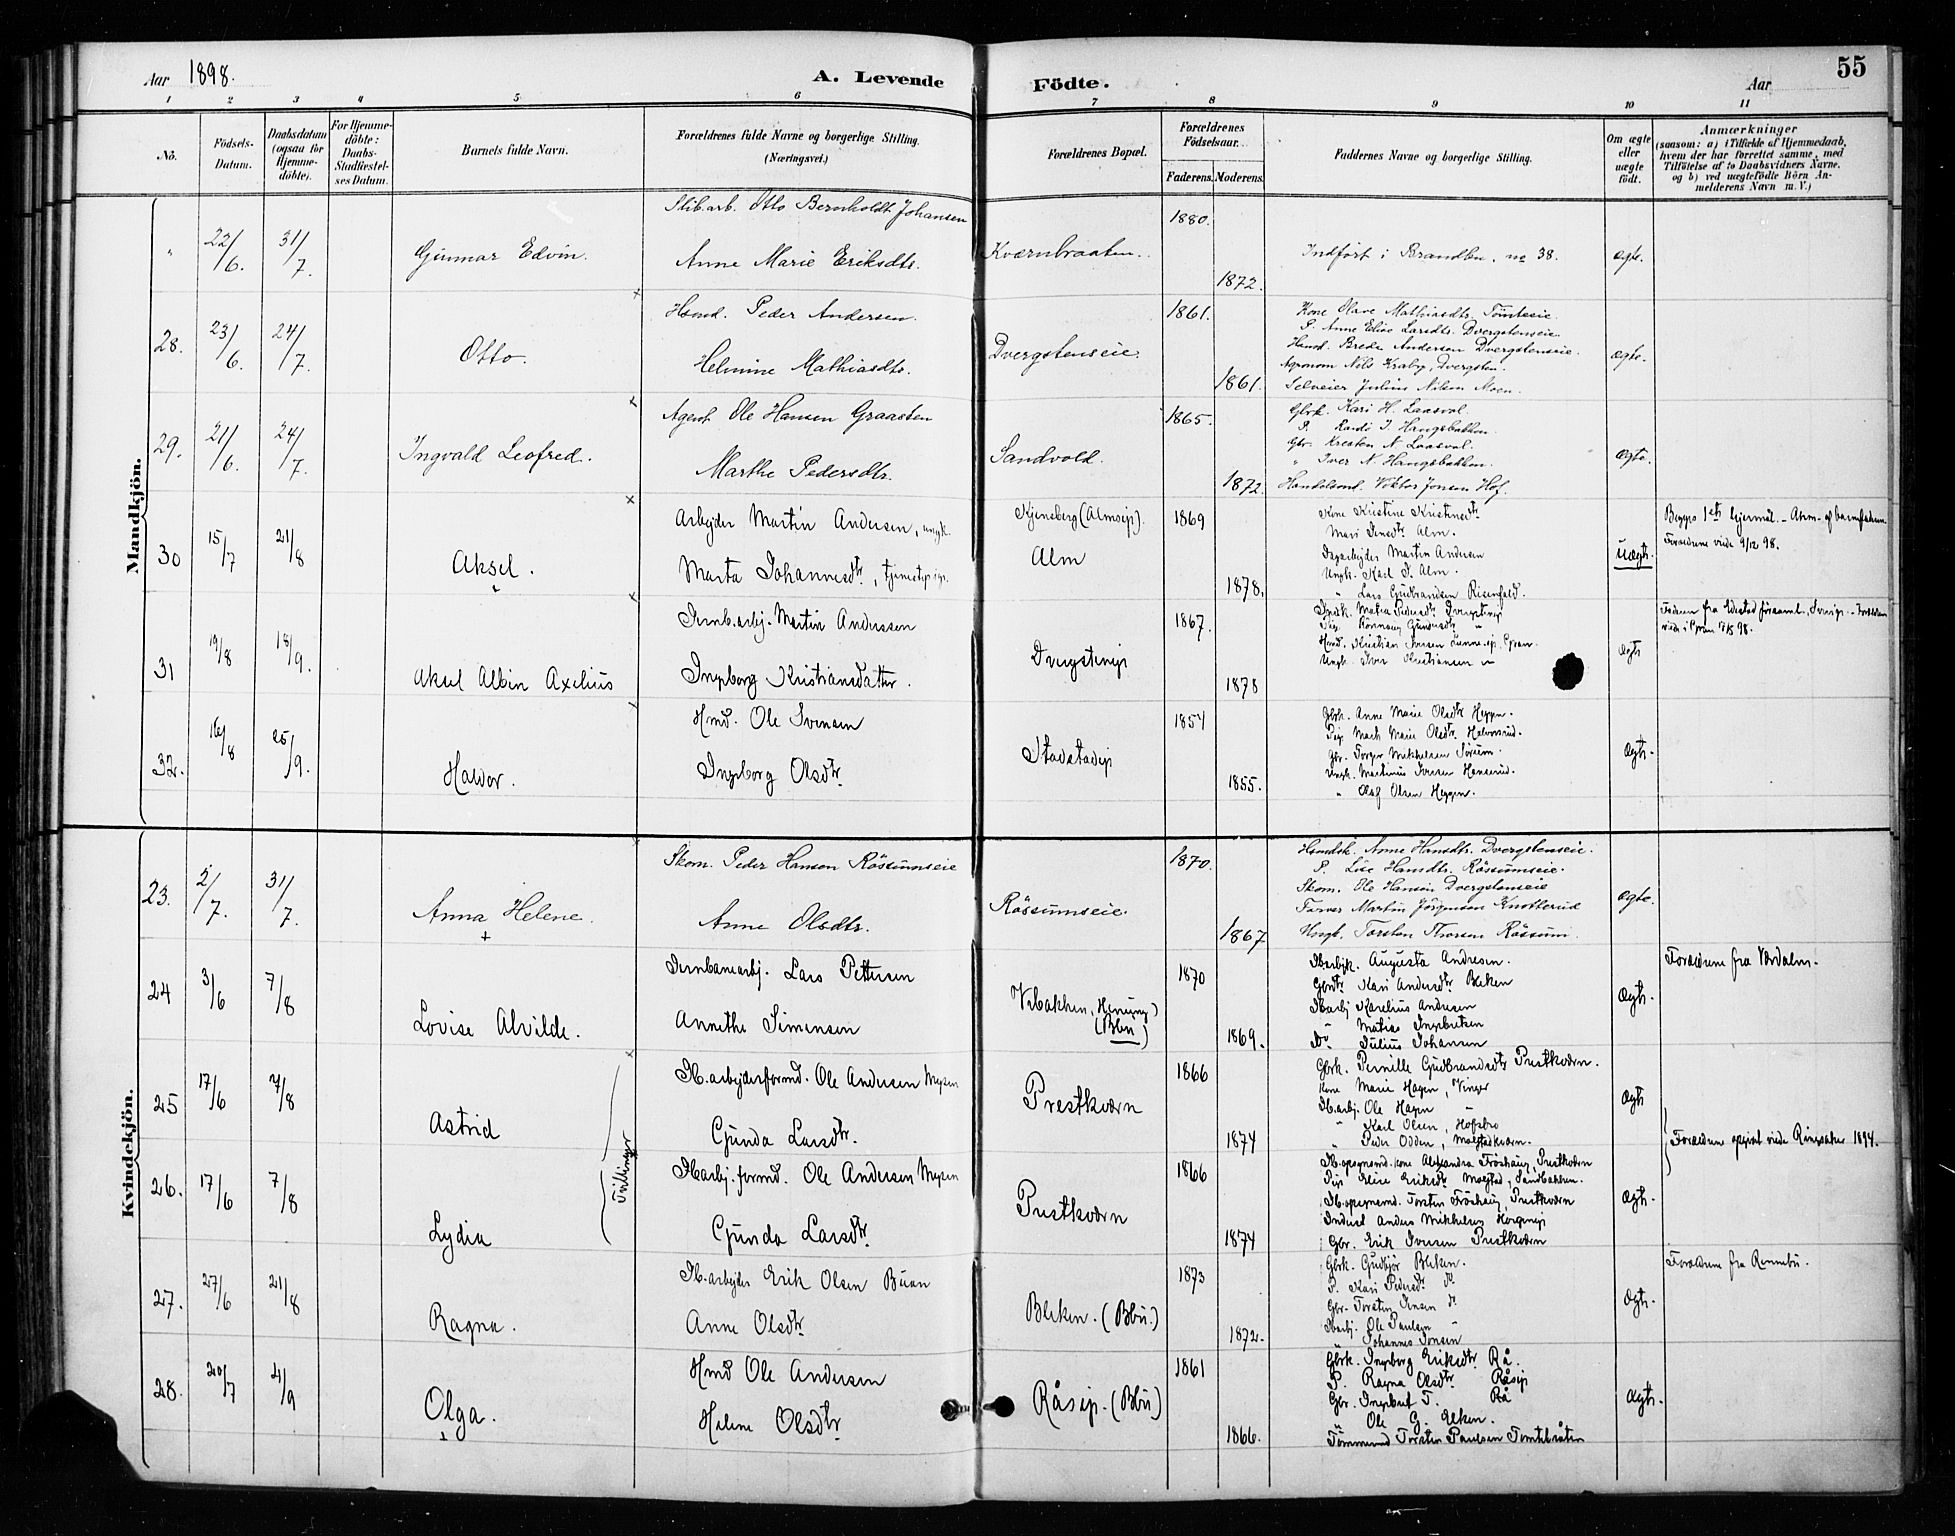 Aar 1898.
A. Levende Födte.
Aar
55
1 2 3 4 5 6 7 8 9 10 11
No.
Födsels-Datum.
Daabsdatum (ogsaa för Hjemme-döbte).
For Hjemme-döbte: Daabs-Stadfæstel-ses Datum.
Barnets fulde Navn.
Forældrenes fulde Navne og borgerlige Stilling. (Næringsvei.)
Forældrenes Bopæl.
Forældrenes Födselsaar.
Faderens. Moderens.
Faddernes Navne og borgerlige Stilling.
Om ægte eller uægte födt.
Anmærkninger
(saasom: a) i Tilfælde af Hjemmedaab, hvem der har forrettet samme, med Tilföielse af to Daabsvidners Navne, og b) ved uægtefödte Börn An-melderens Navn m. V.)
Mandkjön.
" 22/6. 31/7. Gunnar Edvin.
Stib.arb. Otto Bernholdt Johansen
Anne Marie Eriksdtr.
Kværnbraaten.
1880.
1872.
Indfört i Brandbu, no 38.
ægte.
28. 23/6. 24/7. Otto.
Hsmd. Peder Andersen.
Helmine Mathiasdtr.
Dvergsteneie.
1861.
1861.
Kone Olave Mathiasdtr.
P. Anne Elise Larsdtr. Dvergsteneie.
Hsmd. Brede Andersen Dvergsteneie.
Agronom Nils Kraby, Dvergsten.
Selveier Julius Nilsen Moen.
ægte.
29. 21/6. 24/7. Ingvald Leofred.
Agent Ole Hansen Graasten
Marthe Pedersdtr.
Sandvold.
1865.
1872.
Gbrk. Kari H. Laasval.
P. Randi I. Haugsbakken.
Gbr. Kresten N. Laasval.
" Iver N. Haugsbakken.
Handelsmd. Viktor Jonsen Hof.
ægte.
30 15/7 21/8 Aksel.
Arbejder Martin Andersen, ungk.
Marta Johannesdtr,
Kjensberg (Almseje).
Alm
1869
1878.
Kone Kristine
Mari Jensdtr Alm.
Dagarbejder Martin Andersen
Ungk. Karl J. Alm.
" Lars Gudbrandsen
Uægte.
Begges 1ste lejermål. – Anm. af barnefaderen.
Forældrene viede 9/12 98.
31 19/8 18/9. Aksel Albin Axelius
Jernb.arbj. Martin Anderssen
Ingeborg Kristiansdatter.
Dvergsteneje
1867.
1878
Ungk. Iver Kristiansen
Ægte
Faderen fra
32. 16/8 25/9. Halvor.
Hmd. Ole Svensen
Ingeborg Olsdtr.
Stadstadeje
1854
1855.
Gbrk. Anne Marie Olsdtr Heggen.
Pige Marte Marie Olsdtr. Halvorsrud.
Gbr. Torger Mikkelsen Sörum.
Ungk. Martinius Iversen Hanserud.
" Olaf Olsen Heggen.
Ægte.
Kvindekjön.
23. 2/7. 31/7. Anna Helene.
Skom. Peder Hansen Røssumseie
Anne Olsdtr.
Røssumseie.
1870.
1867
Hsmdsk. Anne Hansdtr. Dvergsteneie.
P. Lise Hansdtr. Røssumseie.
Skom. Ole Hansen Dvergsteneie
Farver Martin Jørgensen Knotterud
Ungk. Torsten Thorsen Røssum.
ægte.
24 3/6 7/8 Lovise Alvilde.
Jernbanearbj. Lars Pettersen
Annethe Simensen
Vebakken, (Bbu)
1870
1869.
Jbarbjk. Augusta Andresen.
Gbrdtr. Kari Andersdtr Bleken
Jbarbj. Karelius Andresen
Do Matias Ingebretsen
Do Julius Johansen
Ægte.
Forældrene fra Værdalen.
25 17/6 7/8 Astrid
Tvillinger
Jb.arbejderformd. Ole Andersen Mysen
Gunda Larsdtr.
Prestkværn
1866
1874
Gbrk. Pernille Gudbrandsdtr Prestkværn.
Kone Marie Hagen, Vinger
Jb.arbj. Ole Hagen "
" Karl Olsen, Hofsbro
" Peder Odden, Molstadkværn.
Ægte
Forældrene opgivet viede Ringsaker 1894.
26. 17/6 7/8 Lydia
Jb.arbj.formd. Ole Andersen Mysen
Gunda Larsdtr.
Prestkværn
1866
1874
Jb.opsynsmd. kone Alexandra Fröshaug, Prestkværn
Pige Eline Eriksdtr Molstad, Sandbakken.
Jb.opsynsmd. Torsten Fröshaug, Prestkværn
Inderst Anders Mikkelsen
Gbr. Erik Iversen Prestkværn
Ægte.
27. 27/6 21/8 Ragna.
Jb.arbejder Erik Olsen Buan
Anne Olsdtr
Bleken. (Bbu.)
1873
1872.
Gbrk. Gudbjör Bleken.
P. Kari Pedersdtr do
Gbr. Torsten Jensen do
Jbarbj. Ole Paulsen "
" Johannes Jonsen
Ægte.
Forældrene fra Rennebu.
28. 20/7 4/9 Olga.
Hmd Ole Andersen
Helene Olsdtr
Råseje. (Bbu)
1861
1866.
Gbrk. Ingeborg Eriksdtr. Rå.
P. Ragna Olsdtr Råseje
Gbr. Ingebret T. Rå
" Ole G. Elken.
Tömmermd Torsten Paulsen Tomtebråten
Ægte.